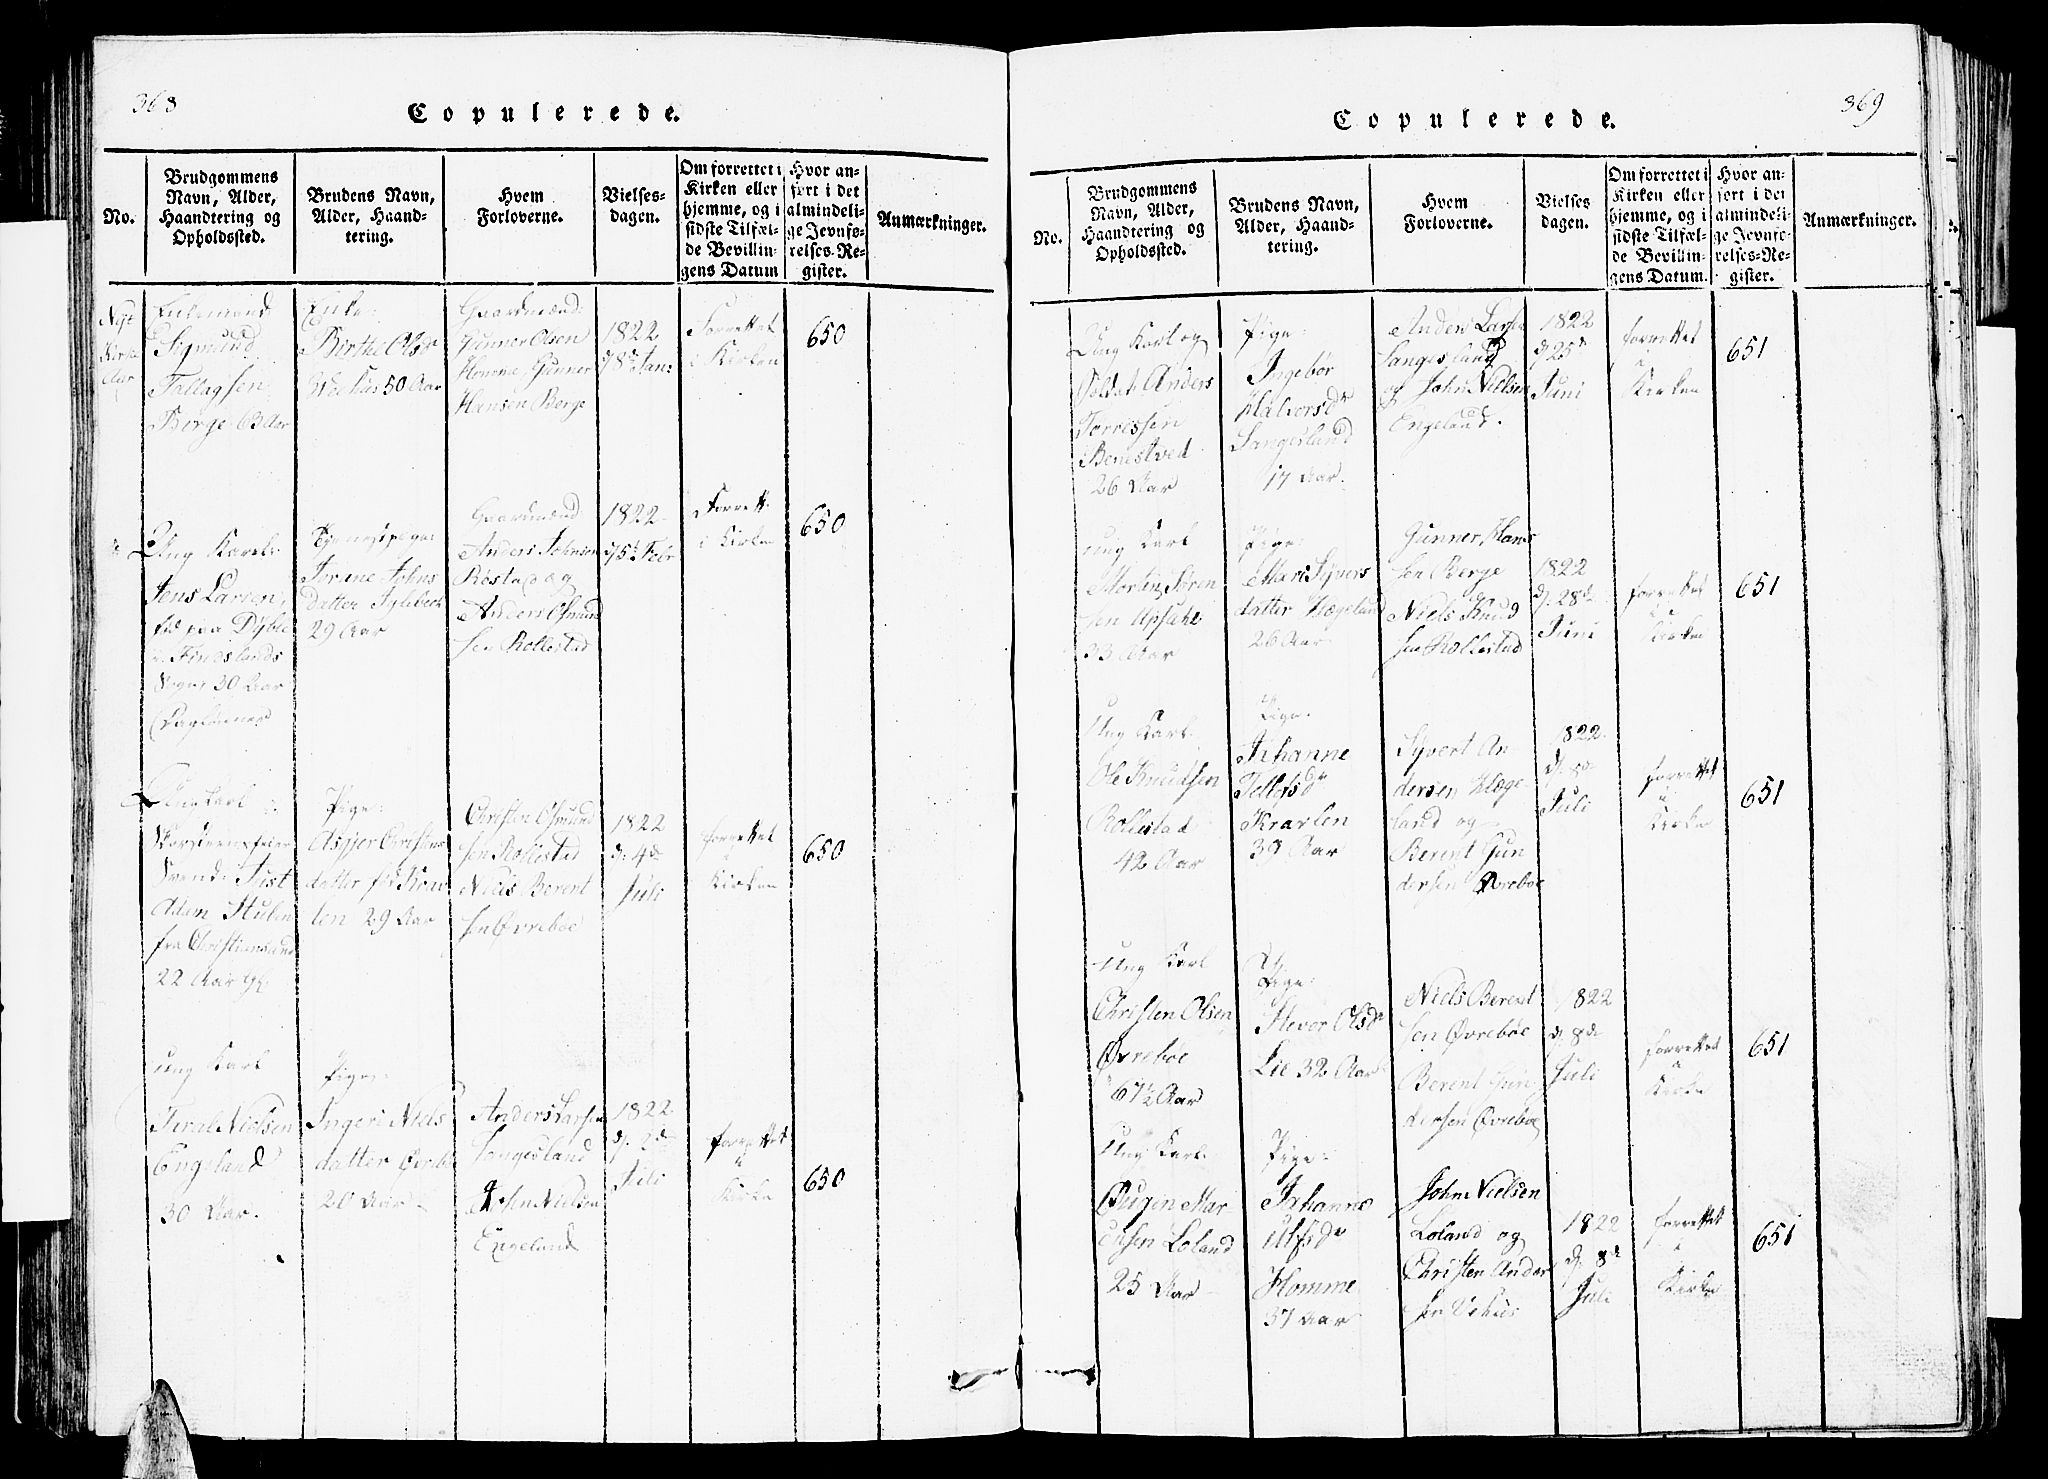 368
Copulerede.
No.
Brudgommens
Navn, Alder,
Haandtering og
Opholdssted.
Brudens Navn,
Alder, Haand-
tering.
Hvem
Forloverne.
Vielses-
dagen.
Om forrettet i
Kirken eller
hjemme, og i
sidste Tilfæl-
de Bevillin-
gens Datum
Hvor an-
ført i det
almindeli-
ge Jevnfø-
relses-Re-
gister.
Anmærkninger.
Nyt
Kirke
Aar
Enkemand
Sigmund
Tallagsen
Berge 63 Aar
Enke:
Birthe Olsdr
Weehus 50 Aar
Gaardmænd:
Gunner Olsen
Homme, Gunner
Hansen Berge
1822
d 8de Jan:
Forrettet
i Kirken
650
Ung Karl:
Jens Larsen,
fød paa Dyble
i Findslands
Sogn, 30 Aar
Tjenestepige:
Jorine Johns
datter
29 Aar
Gaardmænd
Anders Johnsen
Røstad og
Anders Osmund
sen Rollestad
1822
d 5te Febr
Forrett
i Kirken
650
Ung Karl
Skorsteensfeier
Svend: Just
Adam Stuben
fra Christiansand
22 Aar gl.
Pige:
Asgjer Christens
datter fød Krav
len 29 Aar
Christen Osmund
sen Rollestad
Niels Berent
sen Øvrebøe
1822
d. 4de
Juli
forrettet
i
Kirken
650
Ung Karl
Teral Nielsen
Engeland
30 Aar.
Pige:
Ingeri Niels
datter Øvrebø
20 Aar
Anders Larsen
Langesland
Nielsen
Engeland
1822
d. 2de
Juli
forrettet
i
Kirke
650
369
Copulerede.
No.
Brudgommens
Navn, Alder,
Haandtering og
Opholdssted.
Brudens Navn,
Alder, Haand-
tering.
Hvem
Forloverne.
Vielses
dagen.
Om forrettet i
Kirken eller
hjemme, og i
sidste Tilfæl-
de Bevillin-
gens Datum.
Hvor an-
ført i det
almindeli-
ge Jevnfø-
relses-Re-
gister.
Anmærkninger.
Ung Karl og
Soldat Anders
Torressen
Benestved
26 Aar
Pige:
Ingebor
Halvorsdr
Langesland
17 Aar.
Anders Larsen
Langesland
og John Nielsen
Engeland.
1822
d 25de
Juni
forrettet
i
Kirken
651
ung Karl
Morten Søren
sen Upsahl
33 Aar
Pige:
Mari Syvers
datter Hægeland
26 Aar
Gunner Hans
sen Berge
Niels Knud
sen Rollestad
1822
d. 28de
Juni
forrettet
i
Kirken
651
Ung Karl
Ole Knudsen
Rollestad
42 Aar
Pige:
Johanne
Tellefsdr
Kravlen
39 Aar
Syvert An
dersen Hæge
land og
Berent Gun
dersen Øvrebøe
1822
d. 8de
Juli
forrettet
i
Kirke
651
Ung Karl
Christen Olsen
Øvrebøe
67½ Aar
Pige:
Olsdr
Lie 32 Aar
Niels Berent
sen Øvrebøe
Berent Gun
dersen Øvrebøe
1822
d. 8de
Juli
forrettet
i
Kirke
651
Ung Karl
Mar
cusen Loland
25 Aar
Pige:
Johanne
Ulfsdr
Homme
37 Aar
John Nielsen
Loland og
Christen Ander
sen Vehus
1822
d. 8de
Juli
forrettet
i
Kirke
651